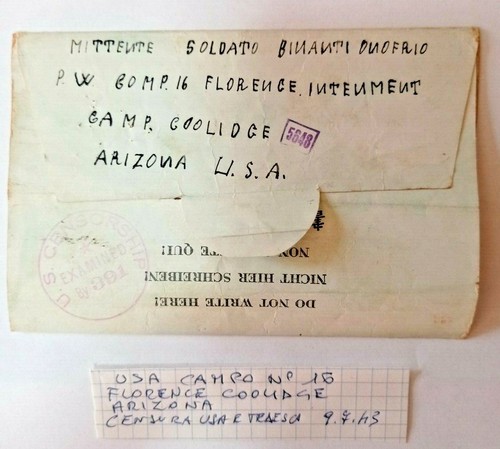 MITTENTE SOLDATO BINANTI ONOFRIO
P.W COMP. 16 FLORENCE INTENMENT
CAMP. COOLIDGE 5848
ARIZONA U.S.A.
U.S. CENSORSHIP
EXAMINED
BY
DO NOT WRITE HERE!
NICHT HIER SCHREIBEN!
QUI!
USA CAMPO Nº 16
FLORENCE COOLIDGE
ARIZONA
CENSURA USA E TEDESCA 9.7.43